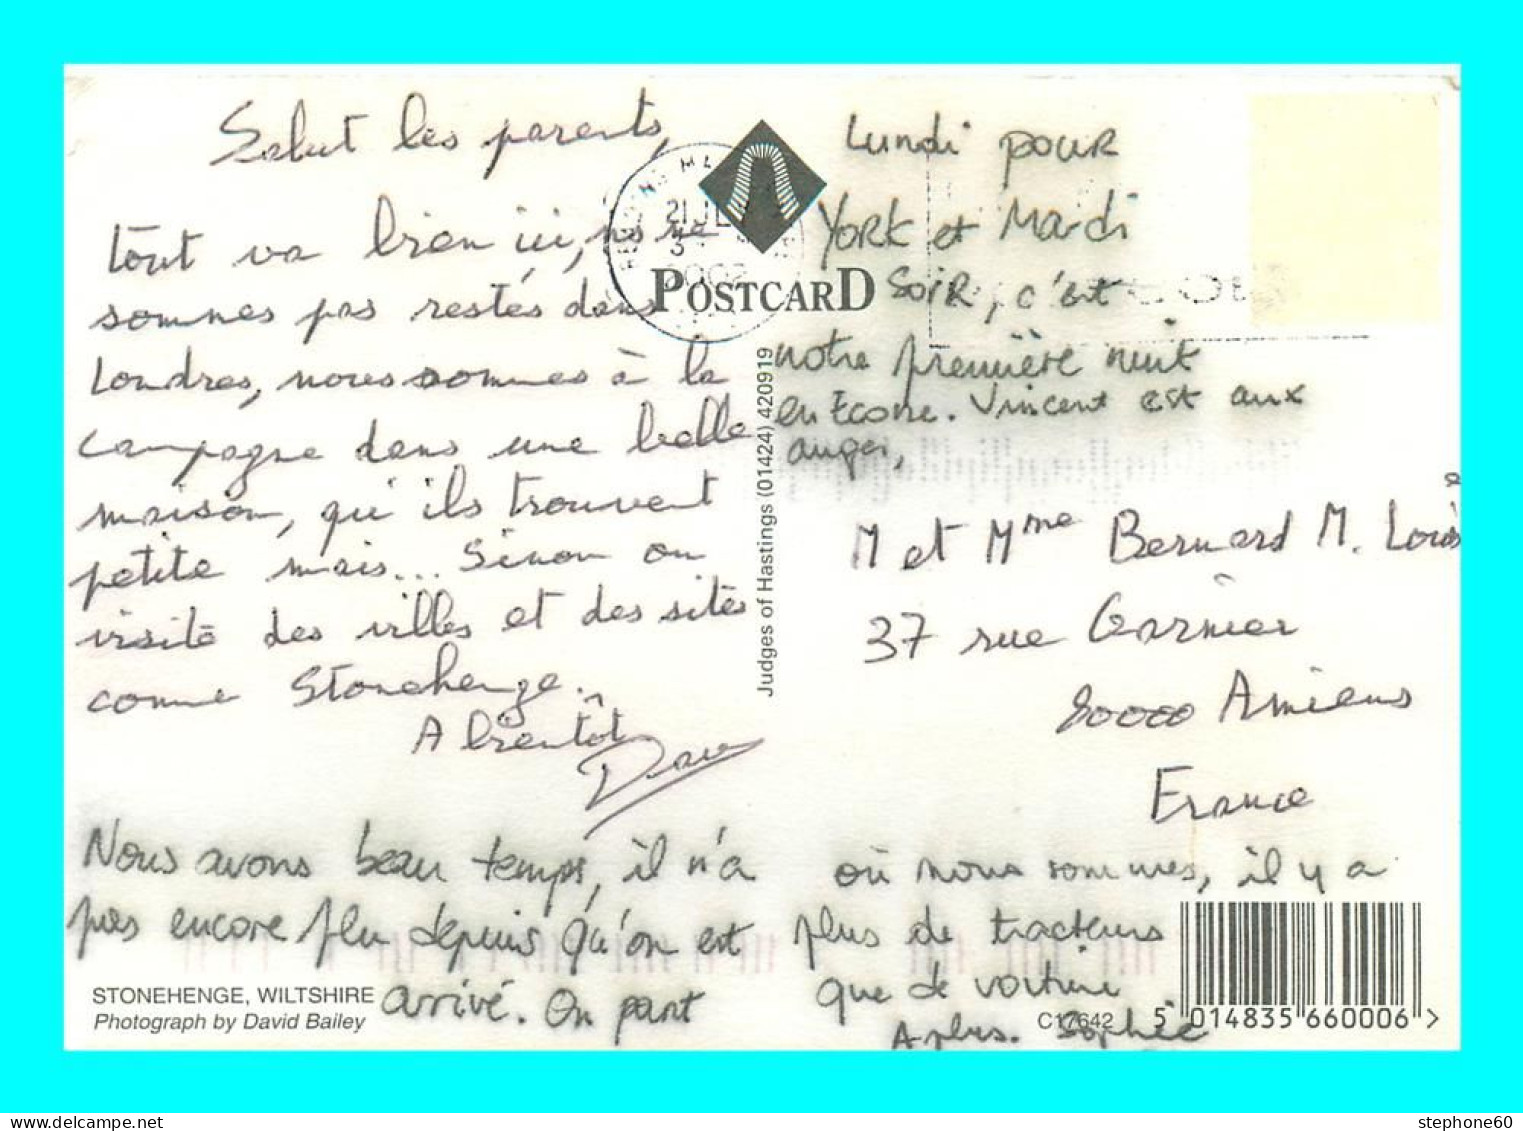 Salut les parents,
tout va bien ici, ns ne
sommes pas restés dans
Londres, nous sommes à la
campagne dans une belle
maison, qu'ils trouvent
petite mais... Sinon on
visite des villes et des sites
comme Stonehenge.
A bientôt
Nous avons beau temps, il n'a
pas encore plu depuis qu'on est
arrivé. On part
STONEHENGE, WILTSHIRE
Photograph by David Bailey
21 JL
2002
POSTCARD
Judges of Hastings (01424) 420919
Lundi pour
York et Mardi
soir, c'est
notre première nuit
en Ecosse. Vincent est aux
anges,
M et Mme Bernard M. Louis
37 rue Garnier
80000 Amiens
France
où nous sommes, il y a
plus de tracteurs
que de voiture
A plus. Sophie
C17642
5 014835 660006 >
stephone60